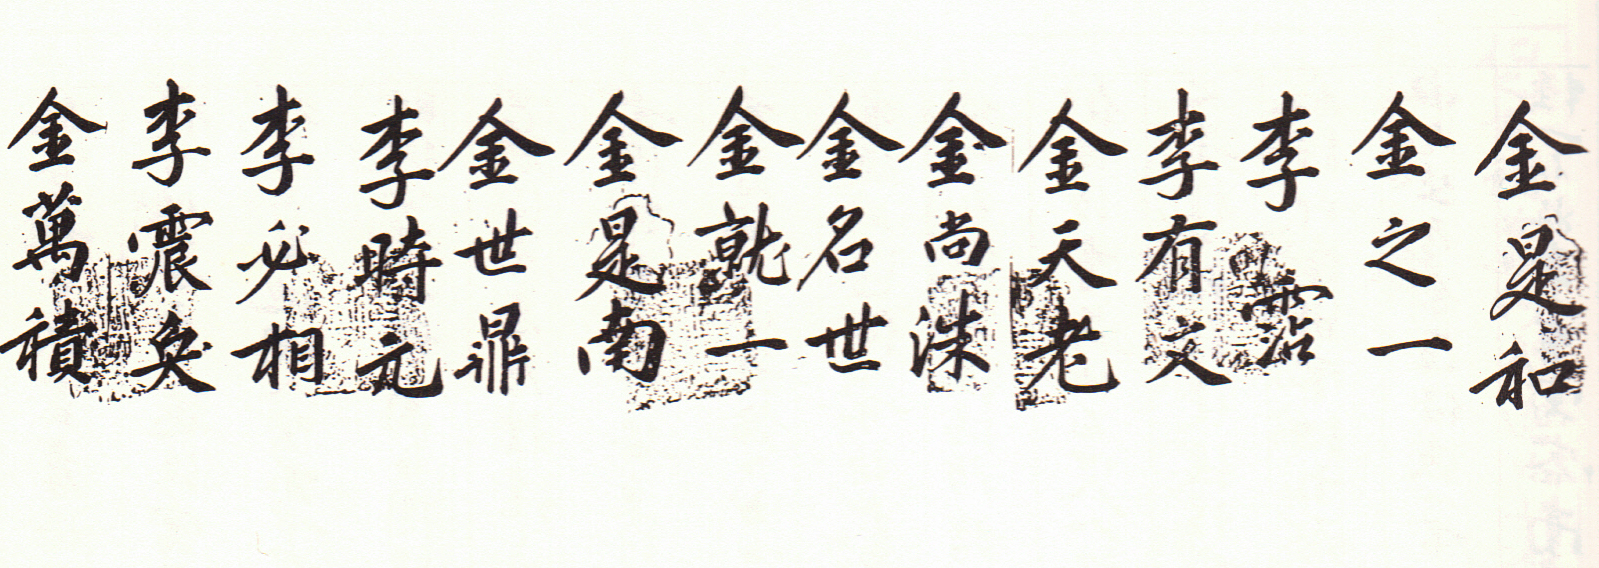 金是和
金之一
李霑
李有文
金天老
金尚洙
金名世
金就一
金是南
金世鼎
李時元
李必相
李震奐
金萬積